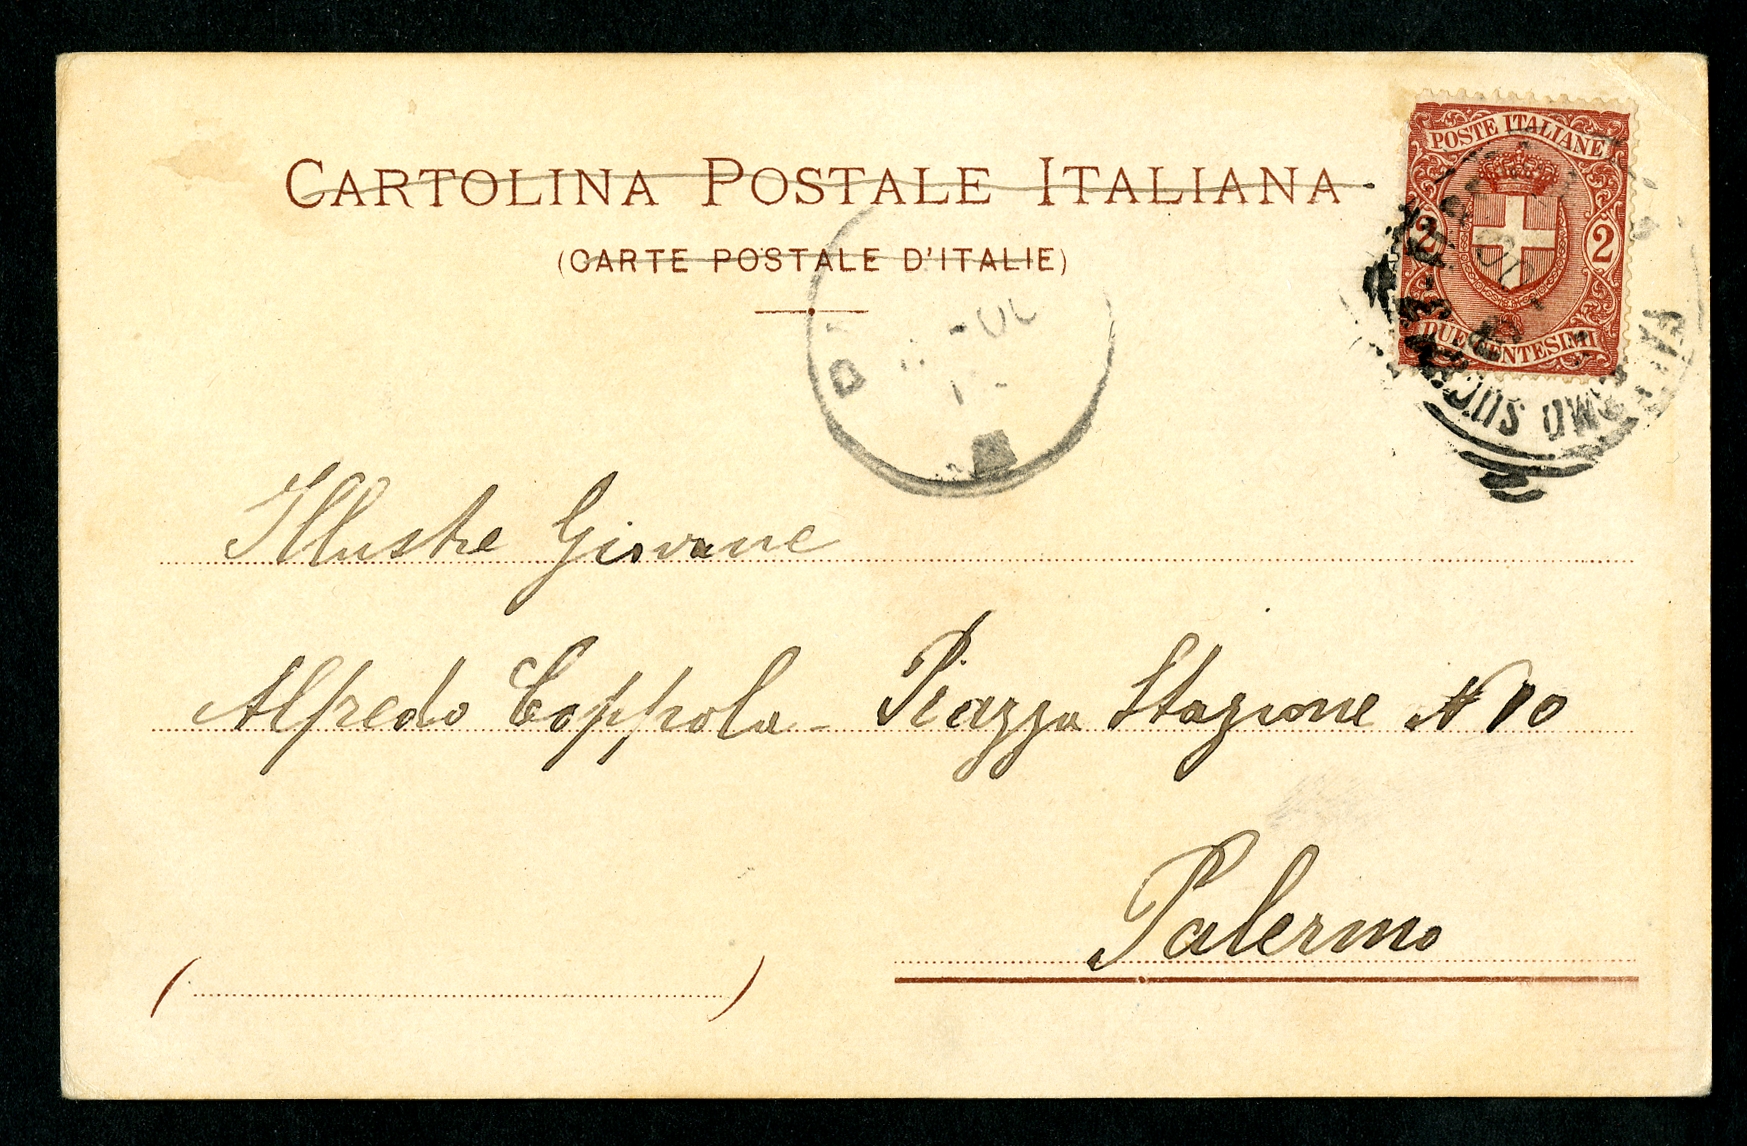 CARTOLINA POSTALE ITALIANA
(CARTE POSTALE D'ITALIE)
POSTE ITALIANE
2 2
DUE CENTESIMI
Illustre Giovane
Alfredo Coppola - Piazza Stazione N 10
Palermo